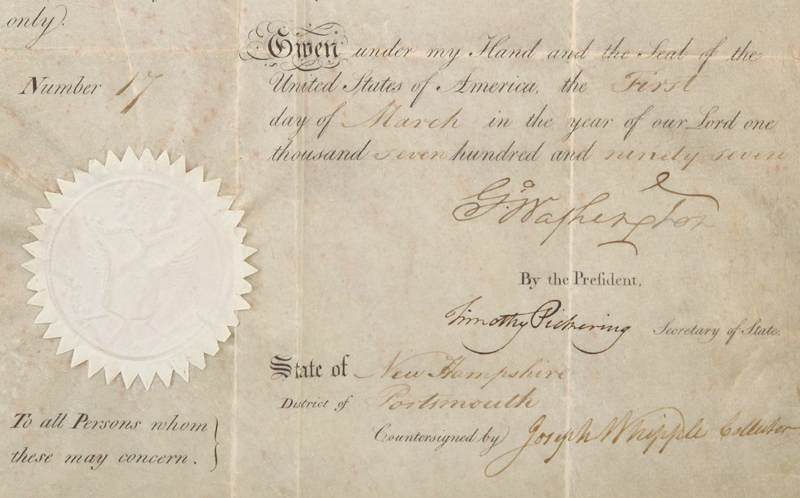 only).
Number 17
Given under my Hand and the Seal of the
United States of America, the First
day of March in the year of our Lord one
thousand seven hundred and ninety seven
Gº. Washington
By the Preſident,
Timothy Pickering Secretary of State.
State of New Hampshire
District of Portsmouth
Countersigned by Joseph Whipple Collector
To all Persons whom
these may concern.